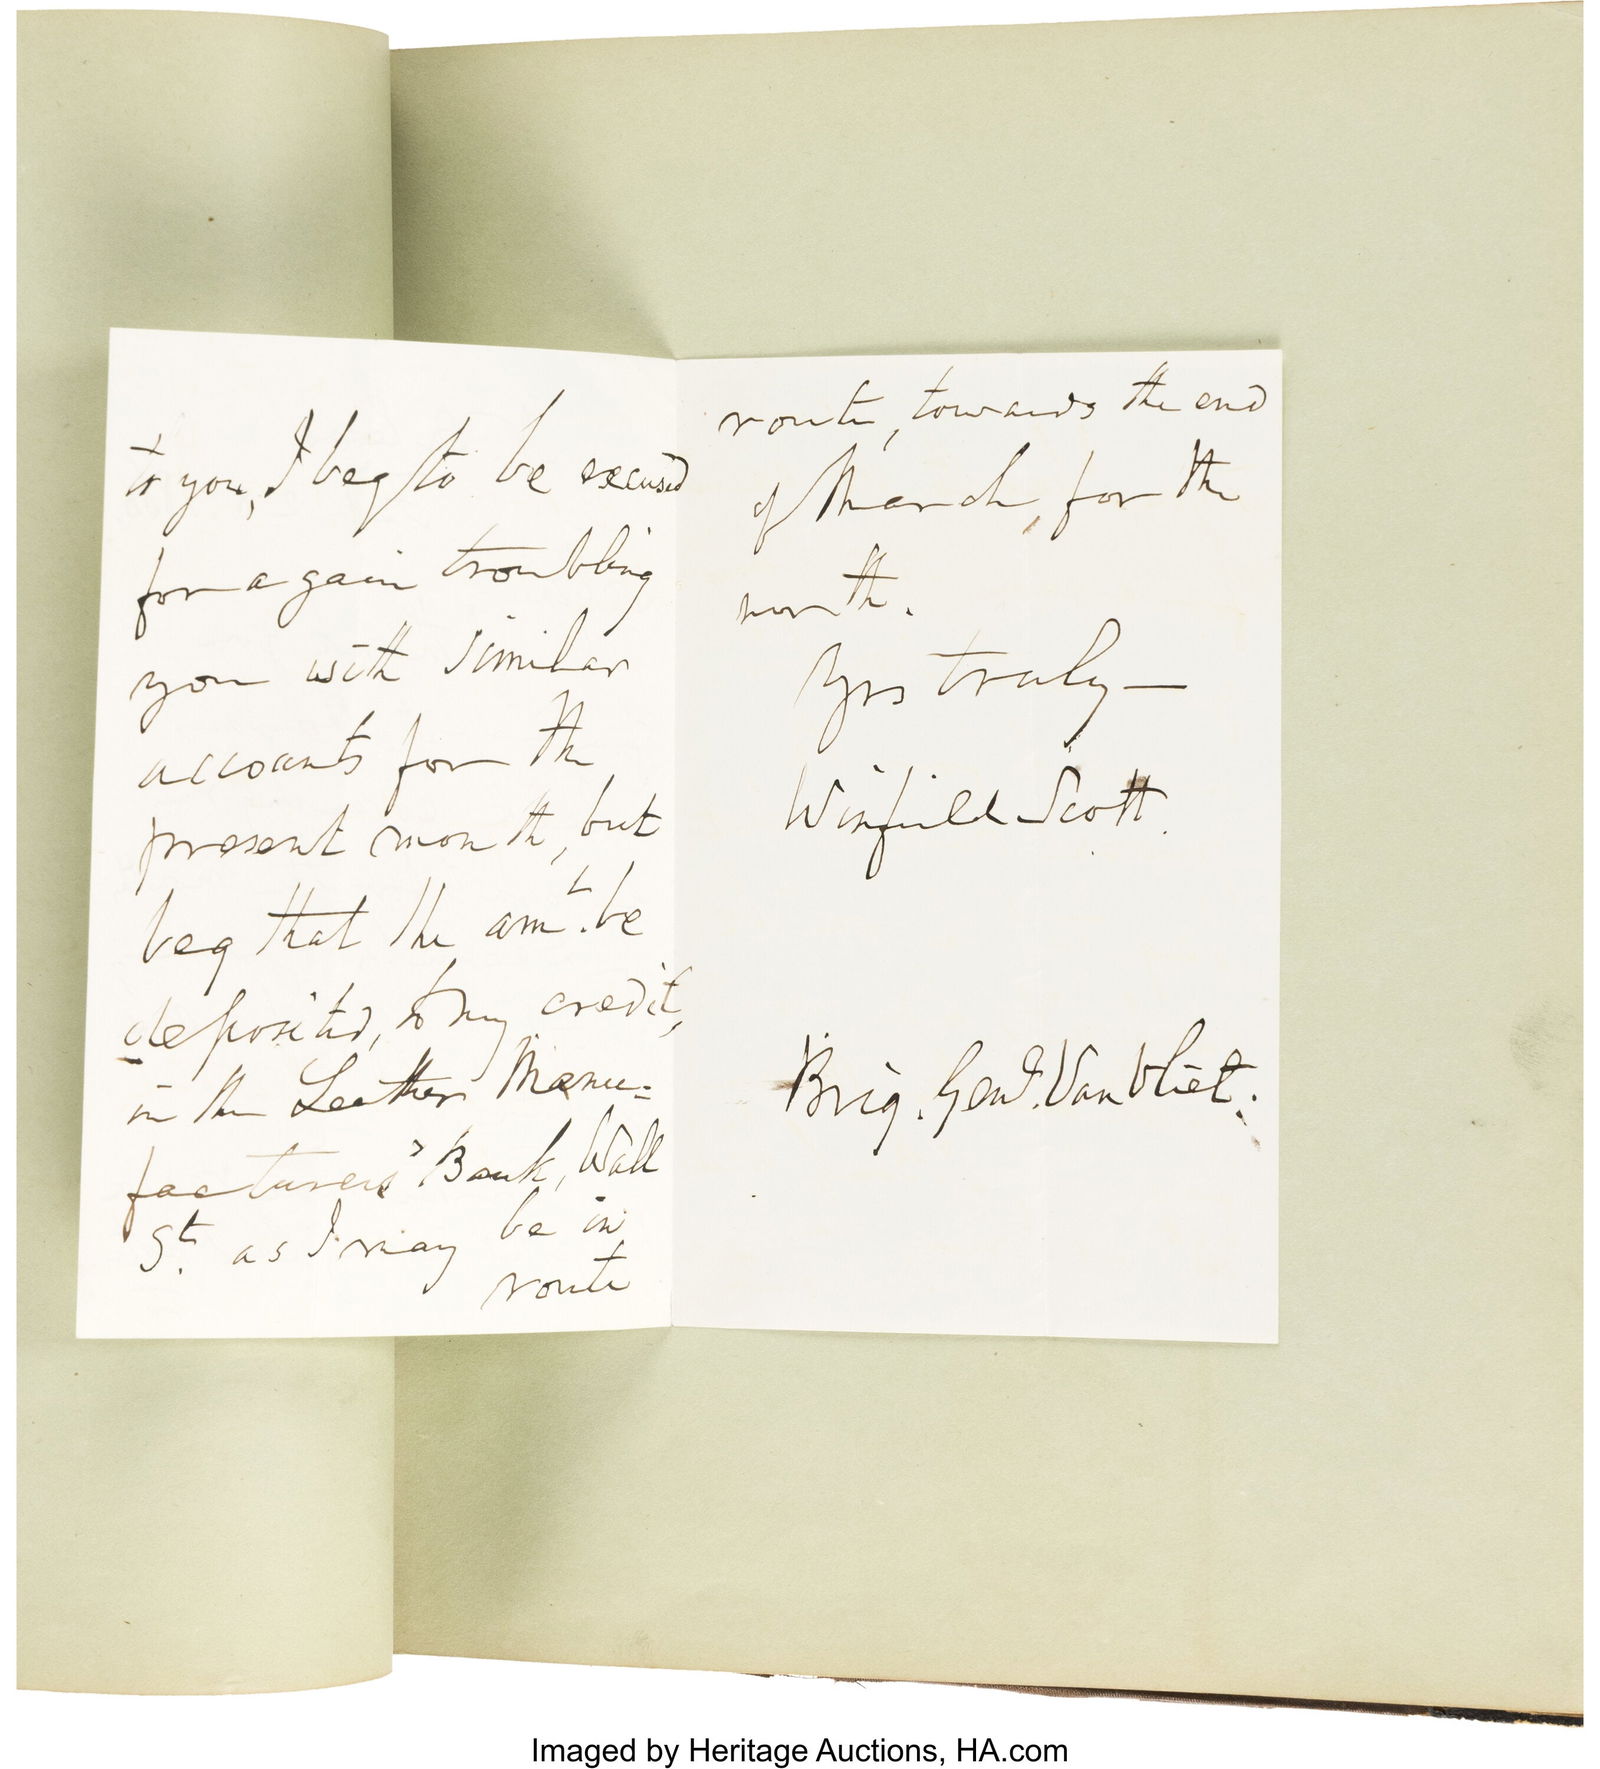 to you, I beg to be excused
for again troubling
you with similar
accounts for the
present month, but
beg that the amt. be
deposited, to my credit,
in the Leather Manu=
facturers' Bank, Wall
St. as I may be in
route
route, towards the end
of March, for the
north.
Yrs truly—
Winfield Scott.
Brig. Genl. Van Vliet.
Imaged by Heritage Auctions, HA.com